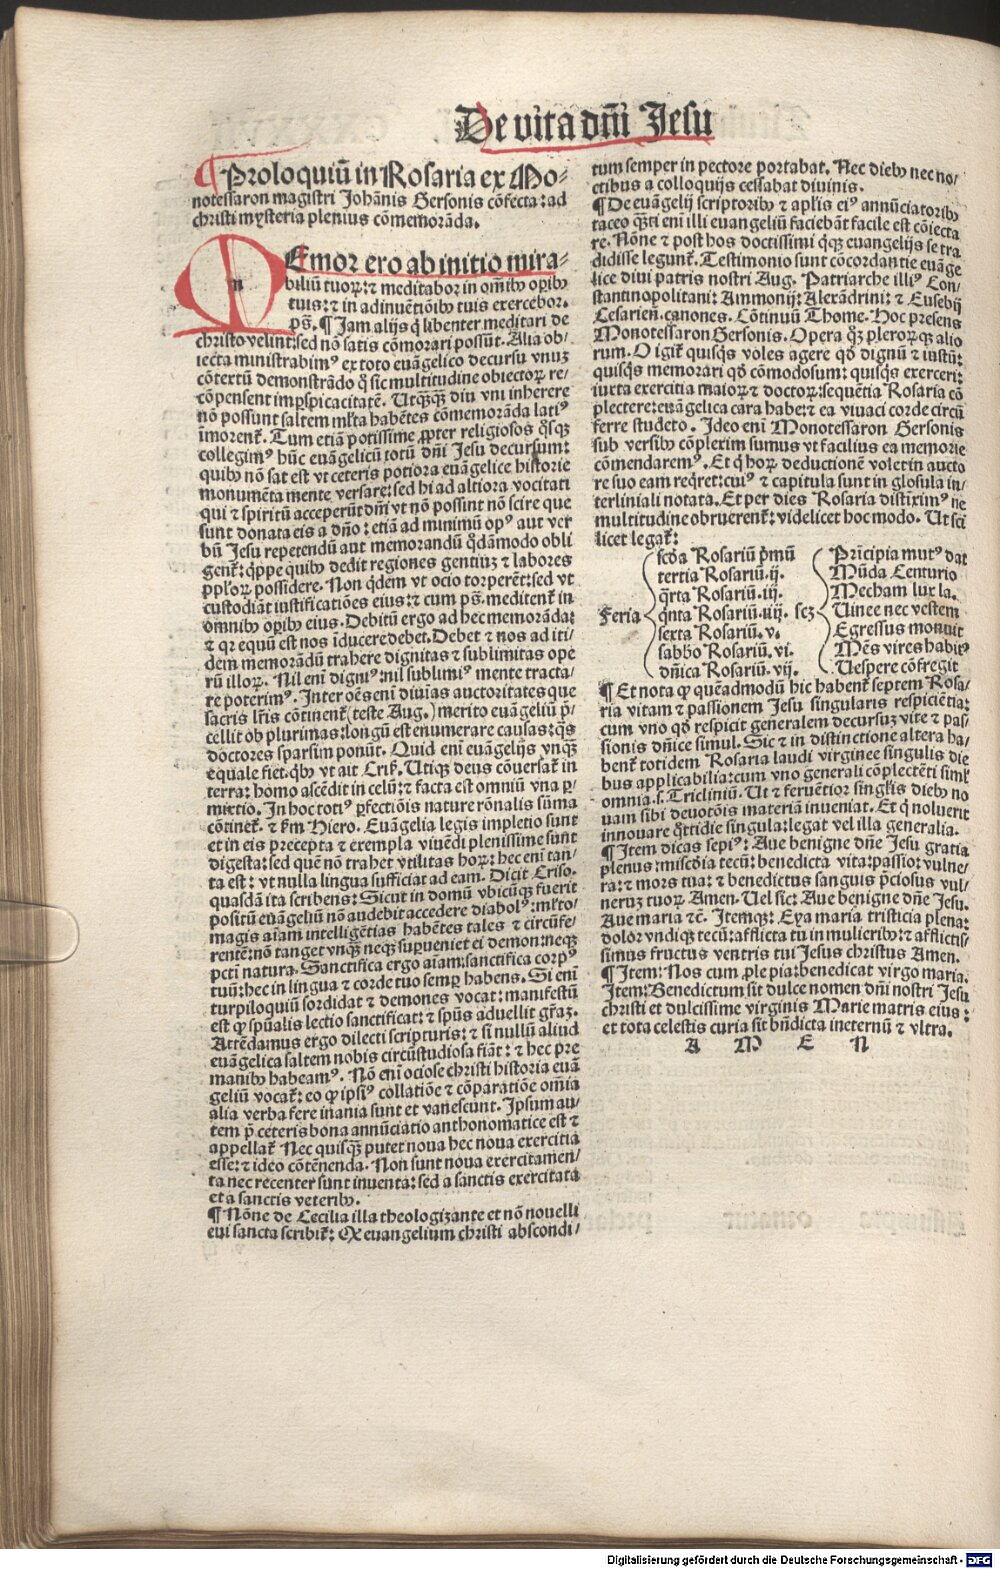 De vita dñi Jesu
¶ Proloquiũ in Rosaria ex Mo-
notessaron magistri Johãnis Gersonis cõfecta: ad
christi mysteria plenius cõmemorãda.
MEmor ero ab initio mira-
biliũ tuoꝝ: ⁊ meditabor in om̃ibꝰ oꝑibꝰ
tuis: ⁊ in adinuẽtiõibꝰ tuis exercebor.
ps̃. ¶ Jam alijs q̇ libenter meditari de
christo velint: sed nõ satis cõmorari possũt. Alia ob-
iecta ministrabimꝰ ex toto euãgelico decursu vnuꝫ
cõtextũ demonstrãdo q̇ sic multitudine obiectoꝝ re-
cõpensent imꝑspicacitatẽ. Utqꝫqꝫ diu vni inherere
nõ possunt saltem ml̃ta habẽtes cõmemorãda latiꝰ
ĩmorent᷑. Tum etiã potissime ꝓpter religiosos q̃sqꝫ
collegimꝰ hũc euãgelicũ totũ dñi Jesu decursum:
quibꝰ nõ sat est vt ceteris potiora euãgelice historie
monumẽta mente versare: sed hi ad altiora vocitati
qui ⁊ spiritũ acceperũt dñi vt nõ possint nõ scire que
sunt donata eis a dño: etiã ad minimũ opꝰ aut ver
bũ Jesu repetendũ aut memorandũ q̃dãmodo obli
gent᷑: q̃ppe quibꝰ dedit regiones gentiuꝫ ⁊ labores
ppl̃oꝝ possidere. Non q̇dem vt ocio torperẽt: sed vt
custodiãt iustificatiões eius: ⁊ cum ps̃. meditent᷑ in
omnibꝰ oꝑibꝰ eius. Debitũ ergo ad hec memorãda:
⁊ qr equũ est nos ĩducere debet. Debet ⁊ nos ad iti-
dem memorãdũ trahere dignitas ⁊ sublimitas ope
rũ illoꝝ. Nil eni digniꝰ: nil sublimiꝰ mente tracta-
re poterimꝰ. Inter oẽs eni diuĩas auctoritates que
sacris lr̃is cõtinent᷑ (teste Aug.) merito euãgeliũ p̃-
cellit ob plurimas: longũ est enumerare causas: q̃s
doctores sparsim ponũt. Quid eni euãgelijs vnqꝫ
equale fiet. q̇bꝰ vt ait Cris̃. Utiqꝫ deus cõuersat᷑ in
terra: homo ascẽdit in celũ: ⁊ facta est omniũ vna p̃-
mixtio. In hoc totiꝰ ꝑfectiõis nature rõnalis sũma
cõtinet᷑. ⁊ s̃m Hiero. Euãgelia legis impletio sunt
et in eis precepta ⁊ exempla viuẽdi plenissime sunt
digesta: sed quẽ nõ trahet vtilitas hoꝝ: hec eni tan-
ta est: vt nulla lingua sufficiat ad eam. Dicit Criso.
quasdã ita scribens: Sicut in domũ vbicũqꝫ fuerit
positũ euãgeliũ nõ audebit accedere diabolꝰ: ml̃to-
magis aĩam intelligẽtias habẽtes tales ⁊ circũfe-
rentẽ: nõ tanget vnqꝫ neqꝫ suꝑueniet ei demon: neqꝫ
pcti natura. Sanctifica ergo aĩam: sanctifica corpꝰ
tuũ: hec in lingua ⁊ corde tuo semꝑ habens. Si eni
turpiloquiũ sordidat ⁊ demones vocat: manifestũ
est ꝙ sp̃ualis lectio sanctificat: ⁊ sp̃us aduellit gr̃aꝫ.
Attẽdamus ergo dilecti scripturis: ⁊ si nullũ aliud
euãgelica saltem nobis circũstudiosa fiãt: ⁊ hec pre
manibꝰ habeamꝰ. Nõ eni ociose christi historia euã
geliũ vocat᷑: eo ꝙ ipsiꝰ collatiõe ⁊ cõparatiõe om̃ia
alia verba fere inania sunt et vanescunt. Ipsum au-
tem p̃ ceteris bona annũciatio anthonomatice est ⁊
appellat᷑ Nec quisqꝫ putet noua hec noua exercitia
esse: ⁊ ideo cõtẽnenda. Non sunt noua exercitamen-
ta nec recenter sunt inuenta: sed a sanctis exercitata
et a sanctis veteribꝰ.
¶ Nõne de Cecilia illa theologizante et nõ nouelli
eui sancta scribit᷑: Ex euangelium christi abscondi-
tum semper in pectore portabat. Nec diebꝰ nec no-
ctibus a colloquijs cessabat diuinis.
¶ De euãgelij scriptoribꝰ ⁊ apl̃is eiꝰ annũciatoribꝰ
taceo q̃ti eni illi euangeliũ faciebãt facile est cõiecta
re. Nõne ⁊ post hos doctissimi q̇qꝫ euangelijs se tra
didisse legunt᷑. Testimonio sunt cõcordantie euãge
lice diui patris nostri Aug. Patriarche illiꝰ Con-
stantinopolitani: Ammonij: Alexãdrini: ⁊ Eusebij
Cesarieñ. canones. Cõtinuũ Thome. Hoc presens
Monotessaron Gersonis. Opera qꝫ pleroꝝqꝫ alio
rum. O igit᷑ quisq̃s voles agere qd̃ dignũ ⁊ iustũ:
quisq̃s memorari qd̃ cõmodosum: quisq̃s exerceri:
iuxta exercitia maioꝝ ⁊ doctoꝝ: sequẽtia Rosaria cõ
plectere: euãgelica cara habe: ⁊ ea viuaci corde circũ
ferre studeto. Ideo eni Monotessaron Gersonis
sub versibꝰ cõplexim sumus vt facilius ea memorie
cõmendaremꝰ. Et q̇ hoꝝ deductionẽ volet in aucto
re suo eam reqret: cuiꝰ ⁊ capitula sunt in glosula in-
terliniali notata. Et per dies Rosaria distixim̃ꝰ ne
multitudine obruerent᷑: videlicet hoc modo. Ut sci
licet legat᷑:
Feria
scd̃a Rosariũ p̃mũ
tertia Rosariũ .ij.
q̃rta Rosariũ .iij.
q̇nta Rosariũ .iiij.
sexta Rosariũ .v.
sabb̃o Rosariũ .vi.
dñica Rosariũ .vij.
scꝫ
Prĩcipia mutꝰ dat
Mũda Centurio
Mecham lux la.
Uinee nec vestem
Egressus monuit
Mẽs vires habitꝰ
Uespere cõfregit
¶ Et nota ꝙ quẽadmodũ hic habent᷑ septem Rosa-
ria vitam ⁊ passionem Jesu singularis respiciẽtia:
cum vno qd̃ respicit generalem decursuꝫ vite ⁊ pas-
sionis dñice simul. Sic ⁊ in distinctione altera ha-
bent᷑ totidem Rosaria laudi virginee singulis die
bus applicabilia: cum vno generali cõplectẽti simł
omnia .s. Triclinium. Ut ⁊ feruẽtior singłis diebꝰ no
uam sibi deuotõis materiã inueniat. Et q̇ noluerit
innouare q̃ttidie singula: legat vel illa generalia.
¶ Item dicas sepiꝰ: Aue benigne dñe Jesu gratia
plenus: misc̃dia tecũ: benedicta vita: passio: vulne-
ra: ⁊ mors tua: ⁊ benedictus sanguis p̃ciosus vul-
neruꝫ tuoꝝ. Amen. Uel sic: Aue benigne dñe Jesu.
Aue maria ⁊c̃. Itemqꝫ: Eya maria tristicia plena:
dolor vndiqꝫ tecũ: afflicta tu in mulieribꝰ: ⁊ afflictis-
simus fructus ventris tui Jesus christus Amen.
¶ Item: Nos cum ꝓle pia: benedicat virgo maria.
Item: Benedictum sit dulce nomen dñi nostri Jesu
christi et dulcissime virginis Marie matris eius:
et tota celestis curia sit bñdicta ineternũ ⁊ vltra.
A M E N
Digitalisierung gefördert durch die Deutsche Forschungsgemeinschaft - DFG